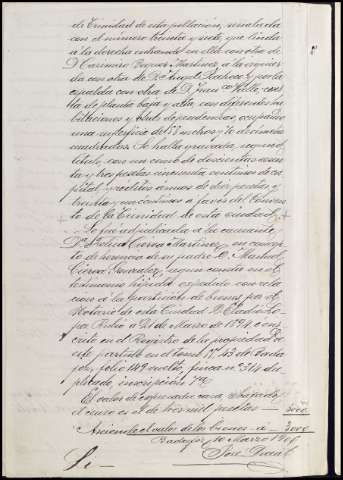 de Trinidad de esta poblacion, señalada
con el número treinta y siete, que linda
a la derecha entrando en ella con otra de
D. Casimiro Martinez, a la izquier
da con otra de D. Angel y por la
espalda con otra de D. Juan cons
ta de planta baja y alta con diferentes ha
bitaciones y demas dependencias, ocupando
una superficie de 158 metros y 70 decimetros
cuadrados. Se halla gravada, segun el
titulo, con un censo de doscientas sesen
ta y tres pesetas cincuenta centimos de ca
pital, y réditos anuos de pesetas y
treinta y centimos a favor del Convento
de la Trinidad de esta ciudad.
Le fue adjudicada a la causante
Dª Cierva Martinez, en concepto
de herencia de su padre D. Manuel
Cierva Gonzalez, segun consta en el
testimonio hijuela expedido con rela
cion a la particion de bienes por el
Notario de esta Ciudad D. Eladio Lo
pez Rubio a 21 de Marzo de 1894, ins
crito en el Registro de la propiedad de
este partido en el tomo 17, 43 de Bada
joz, folio 149 vuelto, finca nº 314 du
plicado, inscripcion 7ª
El valor de expresada casa,
el censo es el de tres mil pesetas — 3000
Asciende el valor de los bienes a — 3000
Badajoz 10 Marzo 1900
José